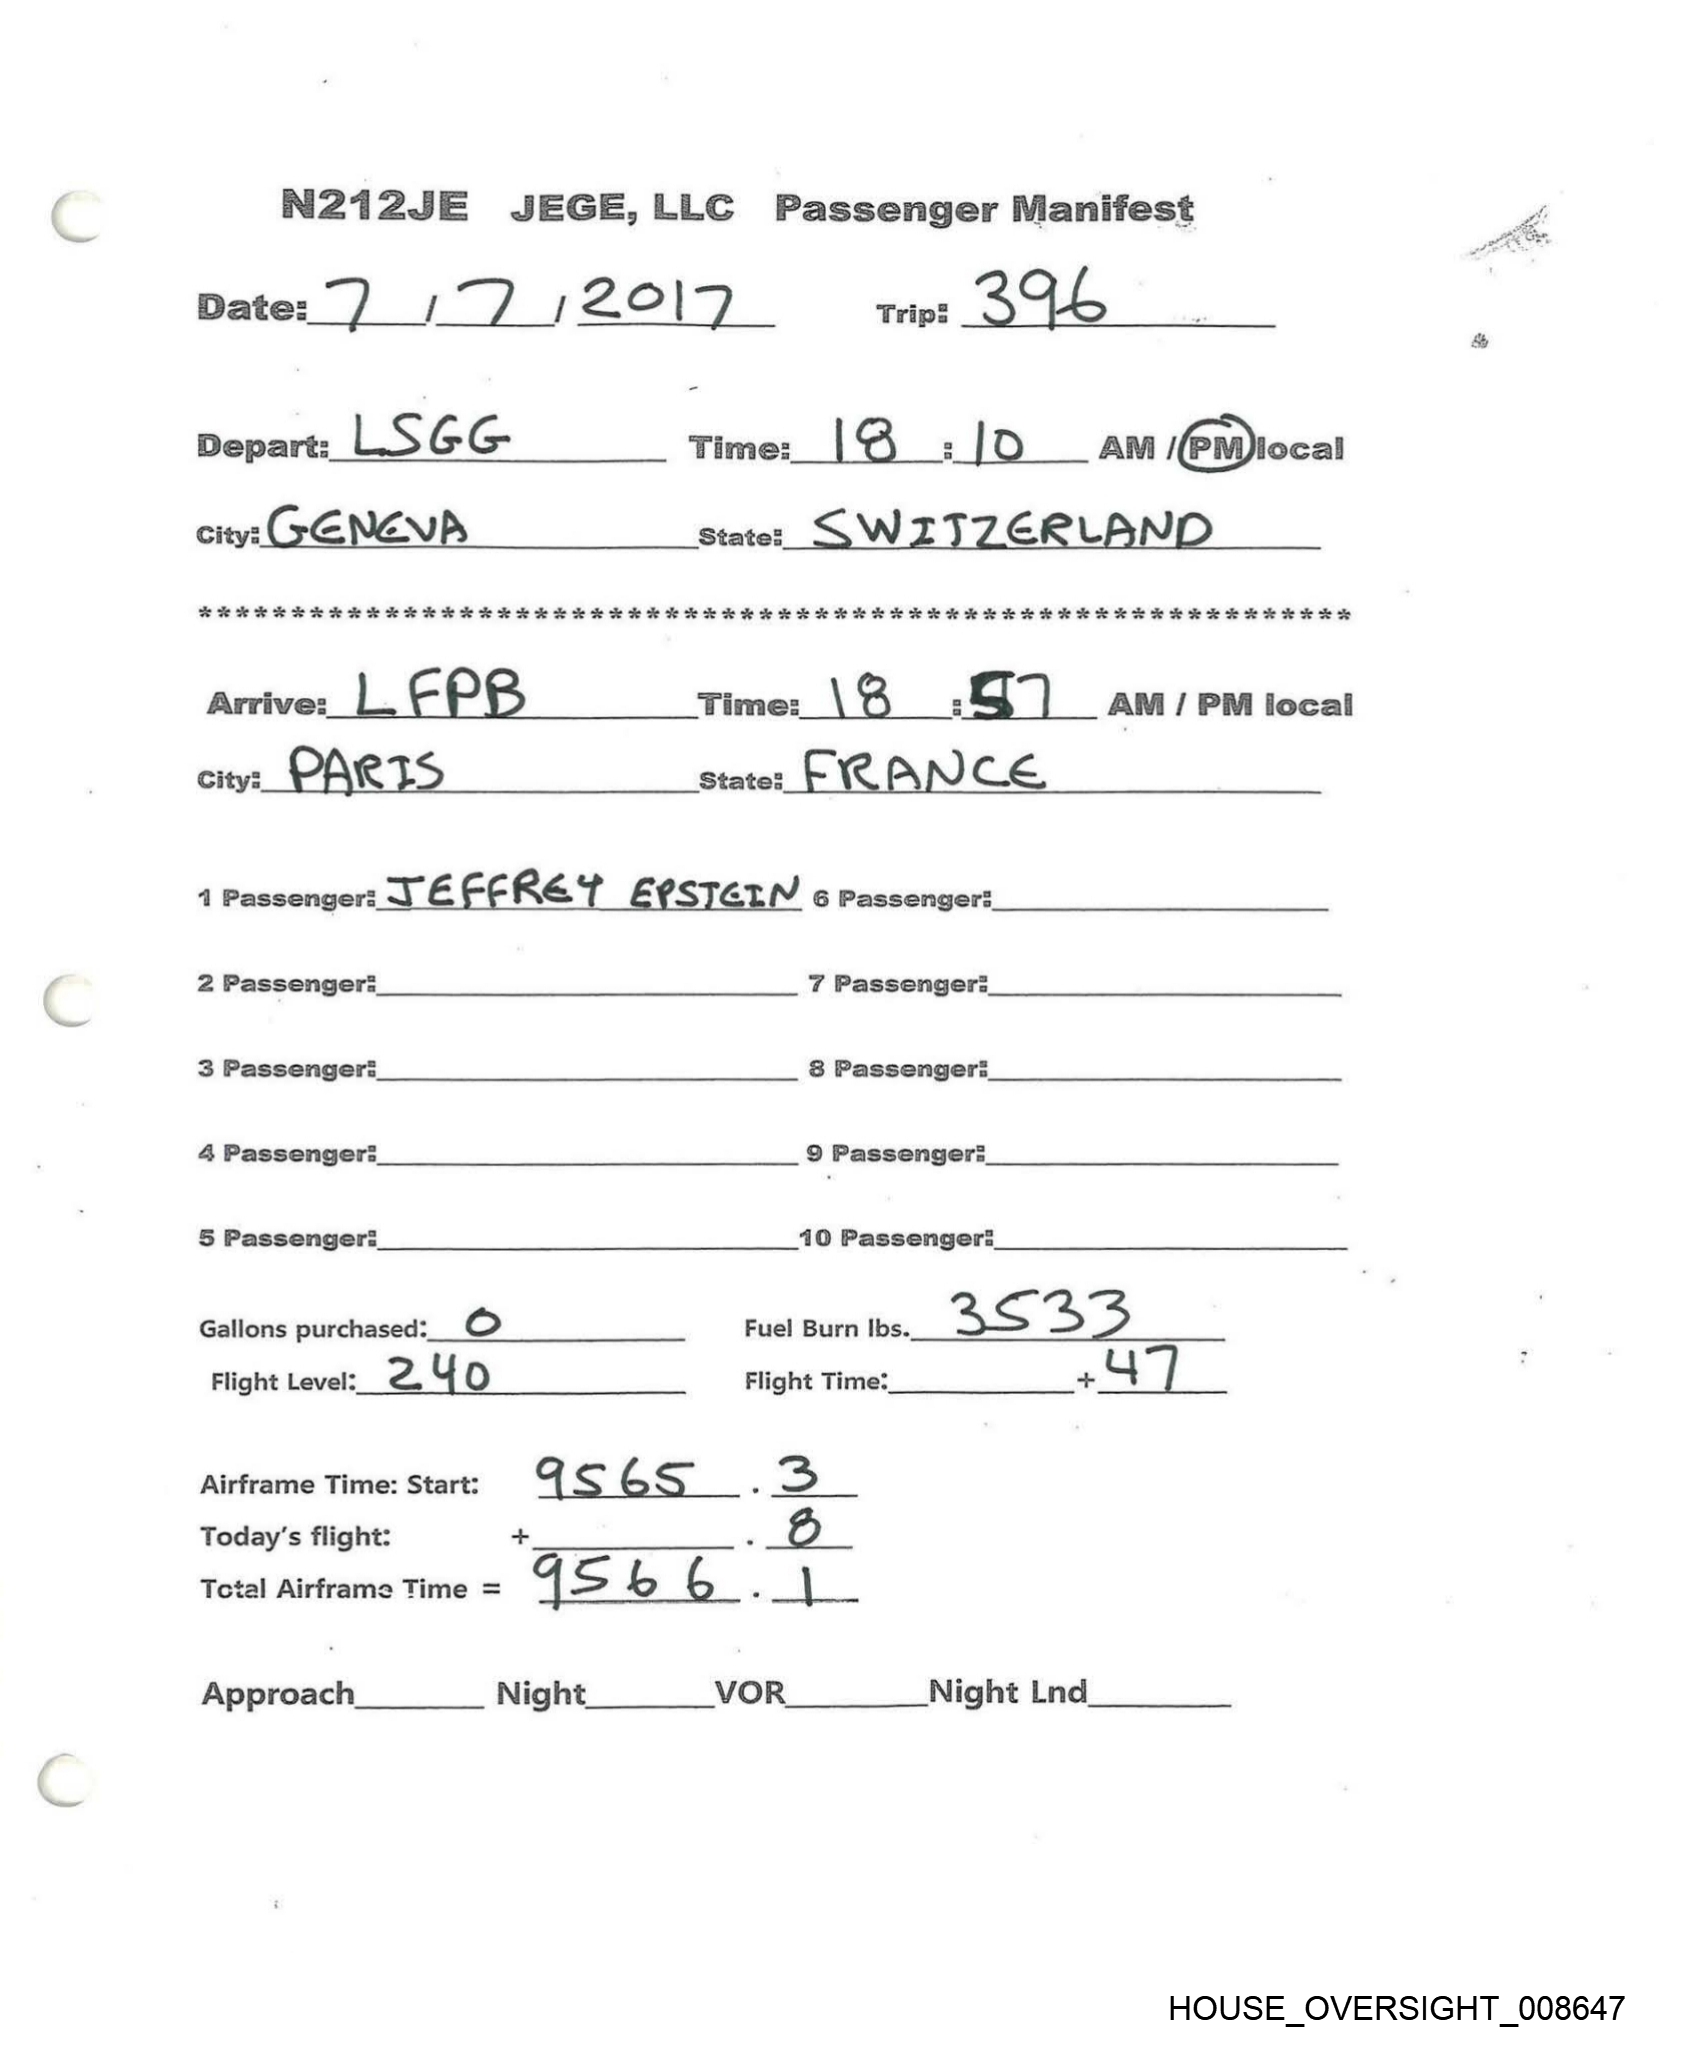 N212JE JEGE, LLC Passenger Manifest
Date: 7 / 7 / 2017 Trip: 396
Depart: LSGG Time: 18 : 10 AM / PM local
City: GENEVA State: SWITZERLAND
**************************************************************
Arrive: LFPB Time: 18 : 57 AM / PM local
City: PARIS State: FRANCE
1 Passenger: JEFFREY EPSTEIN 6 Passenger:
2 Passenger: 7 Passenger:
3 Passenger: 8 Passenger:
4 Passenger: 9 Passenger:
5 Passenger: 10 Passenger:
Gallons purchased: 0 Fuel Burn lbs. 3533
Flight Level: 240 Flight Time: + 47
Airframe Time: Start: 9565 . 3
Today's flight: + . 8
Total Airframe Time = 9566 . 1
Approach Night VOR Night Lnd
HOUSE_OVERSIGHT_008647